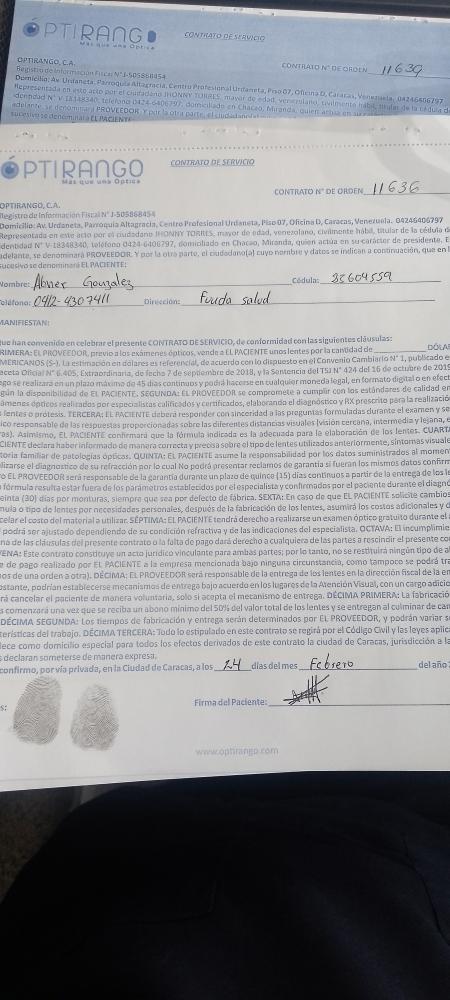 ÓPTIRANGO
Más que una Óptica
CONTRATO DE SERVICIO
CONTRATO N° DE ORDEN 11639
OPTIRANGO, C.A.
Registro de Información Fiscal N° J-505868454
Domicilio: Av. Urdaneta, Parroquia Altagracia, Centro Profesional Urdaneta, Piso 07, Oficina D, Caracas, Venezuela. 04246406797
Representada en este acto por el ciudadano JHONNY TORRES, mayor de edad, venezolano, civilmente hábil, titular de la cédula d
identidad N° V-18348340, teléfono 0424-6406797, domiciliado en Chacao, Miranda, quien actúa en su
adelante, se denominará PROVEEDOR. Y por la otra parte, el ciudadano(a)
sucesivo se denominará EL PACIENTE:
ÓPTIRANGO
Más que una Óptica
CONTRATO DE SERVICIO
CONTRATO N° DE ORDEN 11636
OPTIRANGO, C.A.
Registro de Información Fiscal N° J-505868454
Domicilio: Av. Urdaneta, Parroquia Altagracia, Centro Profesional Urdaneta, Piso 07, Oficina D, Caracas, Venezuela. 04246406797
Representada en este acto por el ciudadano JHONNY TORRES, mayor de edad, venezolano, civilmente hábil, titular de la cédula d
identidad N° V-18348340, teléfono 0424-6406797, domiciliado en Chacao, Miranda, quien actúa en su carácter de presidente. E
adelante, se denominará PROVEEDOR. Y por la otra parte, el ciudadano(a) cuyo nombre y datos se indican a continuación, que en l
sucesivo se denominará EL PACIENTE:
Nombre: Abner Gonzalez Cédula:
Teléfono: 0412-4307411 Dirección: Funda salud
MANIFIESTAN:
que han convenido en celebrar el presente CONTRATO DE SERVICIO, de conformidad con las siguientes cláusulas:
PRIMERA: EL PROVEEDOR, previo a los exámenes ópticos, vende a EL PACIENTE unos lentes por la cantidad de DÓLA
MERICANOS ($-). La estimación en dólares es referencial, de acuerdo con lo dispuesto en el Convenio Cambiario N° 1, publicado e
aceta Oficial N° 6.405, Extraordinaria, de fecha 7 de septiembre de 2018, y la Sentencia del TSJ N° 424 del 16 de octubre de 2019
ago se realizará en un plazo máximo de 45 días continuos y podrá hacerse en cualquier moneda legal, en formato digital o en efect
gún la disponibilidad de EL PACIENTE. SEGUNDA: EL PROVEEDOR se compromete a cumplir con los estándares de calidad en
ámenes ópticos realizados por especialistas calificados y certificados, elaborando el diagnóstico y RX prescrito para la realizació
s lentes o prótesis. TERCERA: EL PACIENTE deberá responder con sinceridad a las preguntas formuladas durante el examen y se
ico responsable de las respuestas proporcionadas sobre las diferentes distancias visuales (visión cercana, intermedia y lejana, e
ras). Asimismo, EL PACIENTE confirmará que la fórmula indicada es la adecuada para la elaboración de los lentes. CUARTA
CIENTE declara haber informado de manera correcta y precisa sobre el tipo de lentes utilizados anteriormente, síntomas visuale
toria familiar de patologías ópticas. QUINTA: EL PACIENTE asume la responsabilidad por los datos suministrados al momen
lizarse el diagnostico de su refracción por lo cual No podrá presentar reclamos de garantía si fueran los mismos datos confirm
o EL PROVEEDOR será responsable de la garantía durante un plazo de quince (15) días continuos a partir de la entrega de los le
fórmula resulta estar fuera de los parámetros establecidos por el especialista y confirmados por el paciente durante el diagnó
einta (30) días por monturas, siempre que sea por defecto de fábrica. SEXTA: En caso de que EL PACIENTE solicite cambios
mula o tipo de lentes por necesidades personales, después de la fabricación de los lentes, asumirá los costos adicionales y d
celar el costo del material a utilizar. SÉPTIMA: EL PACIENTE tendrá derecho a realizarse un examen óptico gratuito durante el
podrá ser ajustado dependiendo de su condición refractiva y de las indicaciones del especialista. OCTAVA: El incumplimie
na de las cláusulas del presente contrato o la falta de pago dará derecho a cualquiera de las partes a rescindir el presente co
VENA: Este contrato constituye un acto jurídico vinculante para ambas partes; por lo tanto, no se restituirá ningún tipo de a
e de pago realizado por EL PACIENTE a la empresa mencionada bajo ninguna circunstancia, como tampoco se podrá tra
nos de una orden a otra). DÉCIMA: EL PROVEEDOR será responsable de la entrega de los lentes en la dirección fiscal de la em
ostante, podrían establecerse mecanismos de entrega bajo acuerdo en los lugares de la Atención Visual, con un cargo adicio
rá cancelar el paciente de manera voluntaria, solo si acepta el mecanismo de entrega. DÉCIMA PRIMERA: La fabricació
s comenzará una vez que se reciba un abono mínimo del 50% del valor total de los lentes y se entregan al culminar de can
DÉCIMA SEGUNDA: Los tiempos de fabricación y entrega serán determinados por EL PROVEEDOR, y podrán variar s
terísticas del trabajo. DÉCIMA TERCERA: Todo lo estipulado en este contrato se regirá por el Código Civil y las leyes aplic
lece como domicilio especial para todos los efectos derivados de este contrato la ciudad de Caracas, jurisdicción a la
s declaran someterse de manera expresa.
confirmo, por vía privada, en la Ciudad de Caracas, a los 24 días del mes Febrero del año
s:
Firma del Paciente:
www.optirango.com